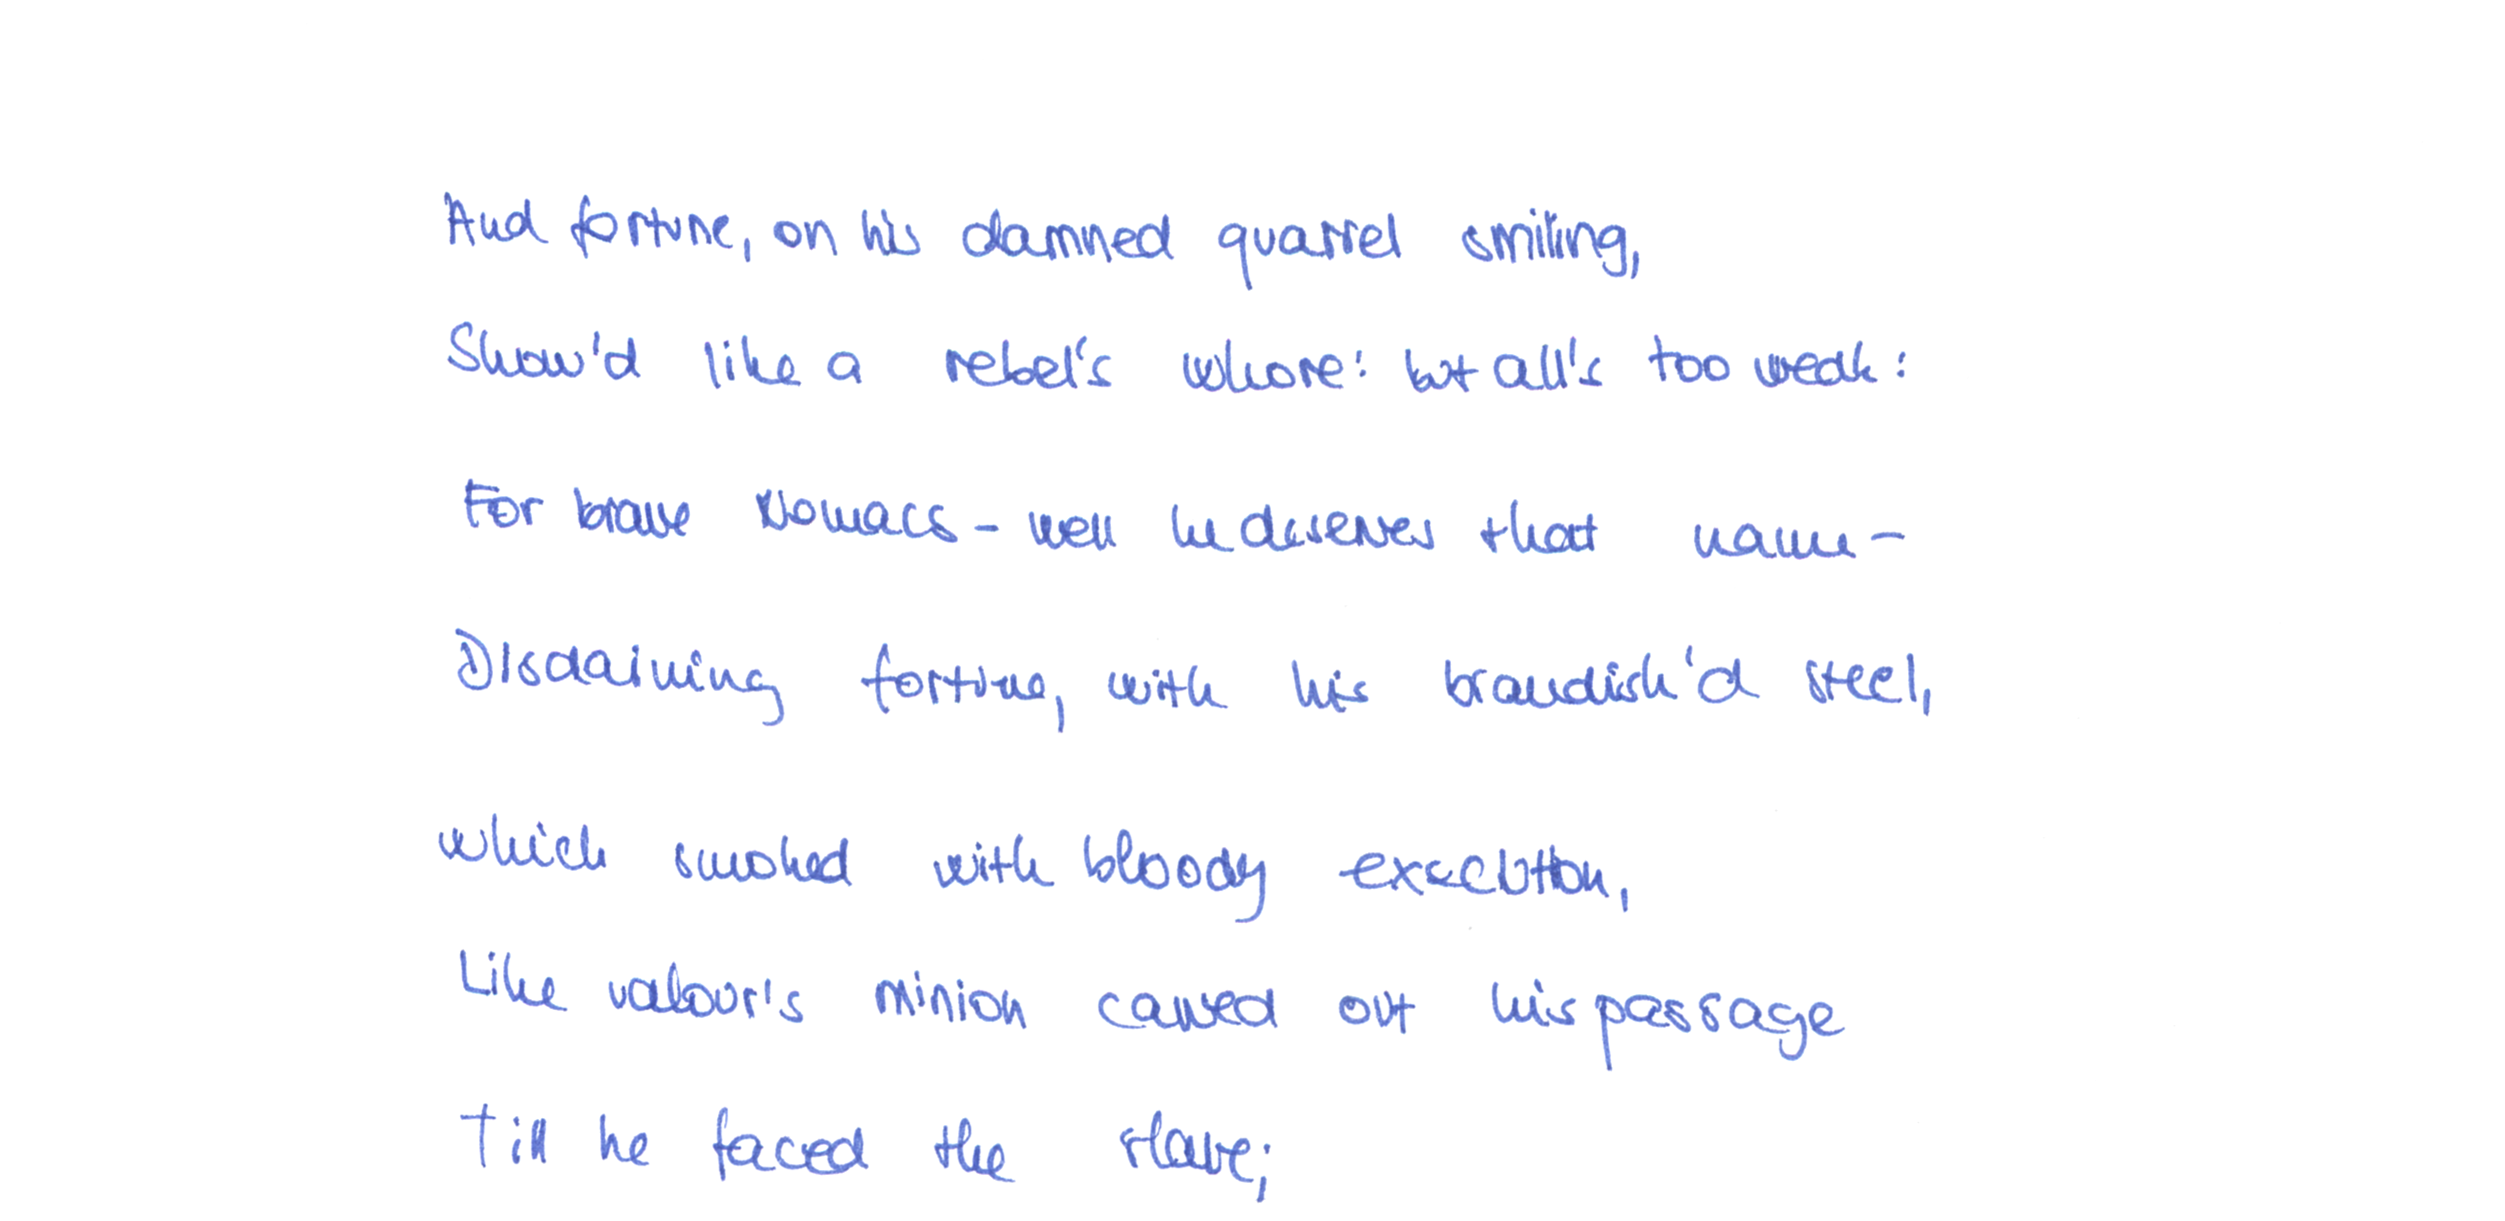 And fortune, on his damned quarrel smiling,
Show'd like a rebel's whore: but all's too weak:
For brave Nomacs - well he deserves that name -
Disdaining fortune, with his brandish'd steel,
which smoked with bloody execution,
Like valour's minion carved out his passage
Till he faced the slave;